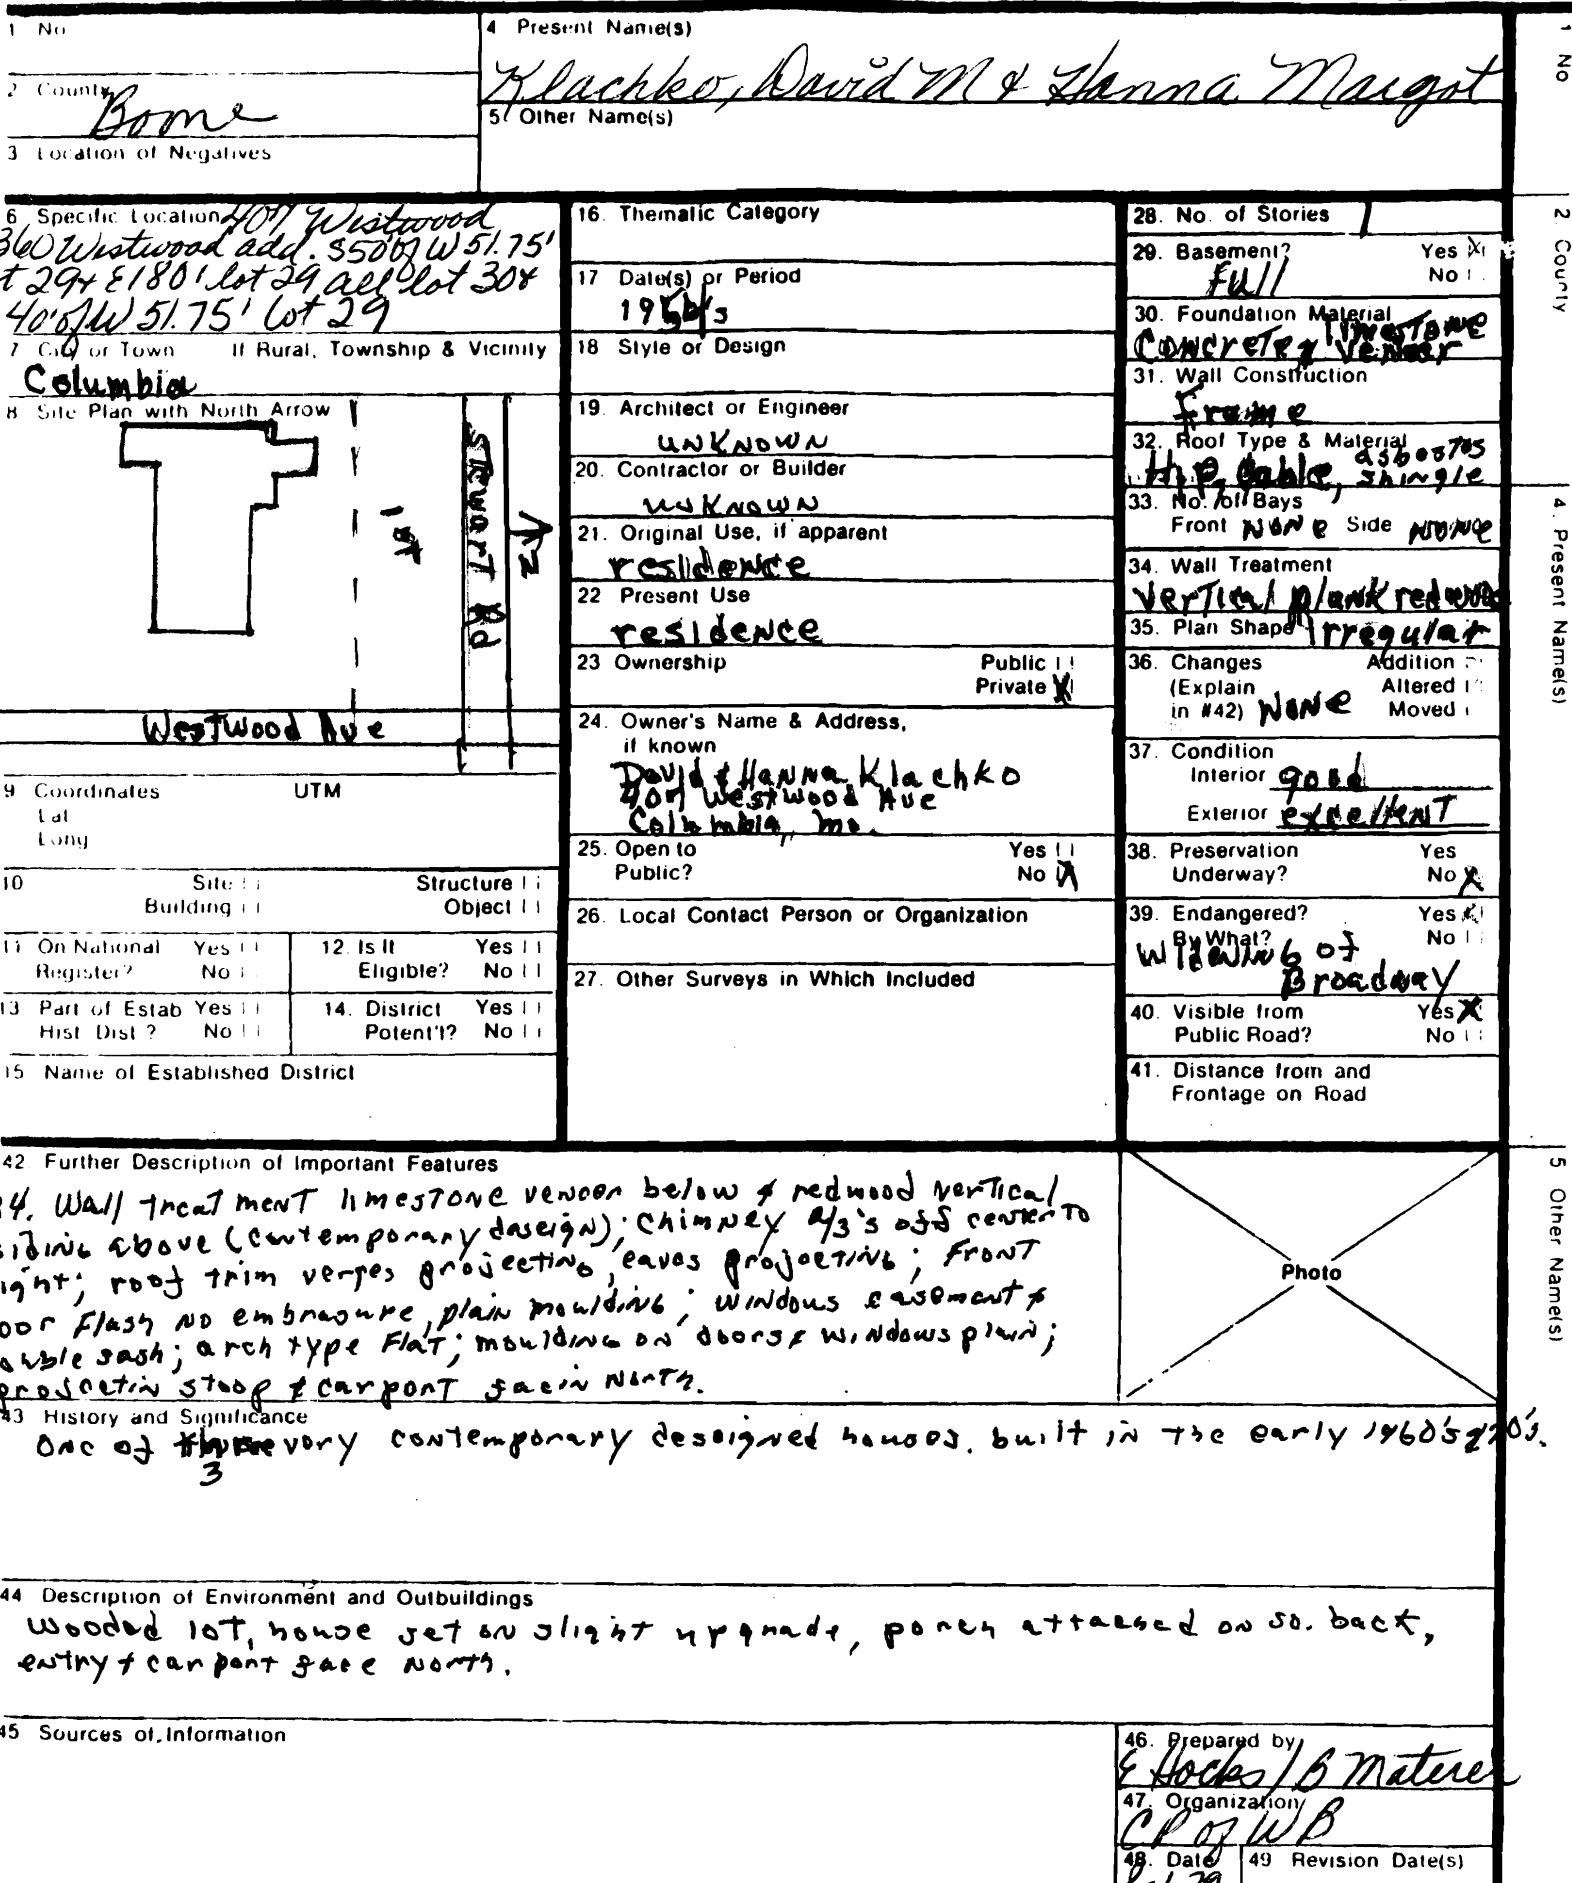 1 No
4 Present Name(s)
Klachko, David M & Hanna Margot
2 County
Boone
5 Other Name(s)
3 Location of Negatives
6 Specific Location 407 Westwood
360 Westwood add. S50' of W 51.75'
t 29 & E180' lot 29 all lot 30 &
40' of W 51.75' lot 29
7 City or Town If Rural, Township & Vicinity
Columbia
8 Site Plan with North Arrow
lot
Stewart Rd
N
Westwood Ave
9 Coordinates UTM
Lat
Long
10 Site Structure
Building Object
11 On National Register? Yes No
12. Is It Eligible? Yes No
13 Part of Estab Hist Dist? Yes No
14. District Potent'l? Yes No
15 Name of Established District
16. Thematic Category
17 Date(s) or Period
18 Style or Design
19. Architect or Engineer
UNKNOWN
20. Contractor or Builder
UNKNOWN
21. Original Use, if apparent
residence
22 Present Use
residence
23 Ownership Public
Private X
24. Owner's Name & Address,
if known
David & Hanna Klachko
407 Westwood Ave
Columbia, Mo.
25. Open to Yes
Public? No X
26. Local Contact Person or Organization
27. Other Surveys in Which Included
28. No. of Stories 1
29. Basement? Yes X
Full No
30. Foundation Material
Concrete & limestone veneer
31. Wall Construction
Frame
32. Roof Type & Material
Hip, Gable, asbostos shingle
33. No. of Bays
Front NONE Side NONE
34. Wall Treatment
Vertical plank redwood
35. Plan Shape Irregular
36. Changes Addition
(Explain Altered
in #42) NONE Moved
37. Condition
Interior good
Exterior excellent
38. Preservation Yes
Underway? No X
39. Endangered? Yes X
By What? No
Widening of
Broadway
40. Visible from Yes X
Public Road? No
41. Distance from and
Frontage on Road
42 Further Description of Important Features
4. Wall treatment limestone veneer below & redwood vertical
siding above (contemporary daseign); chimney 2/3's off center to
ight; roof trim verges projecting, eaves projecting; Front
oor Flush no embrasure, plain moulding; windows casement &
ouble sash; arch type Flat; moulding on doors & windows plain;
projectin stoop & carport facin North.
Photo
43 History and Significance
One of 3 very contemporary desoigned houses. built in the early 1960's & 70's.
44 Description of Environment and Outbuildings
Wooded lot, house set on slight upgrade, porch attached on so. back,
entry & carport face North.
45 Sources of Information
46. Prepared by
E Hocks / B Materer
47. Organization
CP of WB
48. Date
49 Revision Date(s)
1 No
2. County
4. Present Name(s)
5 Other Name(s)